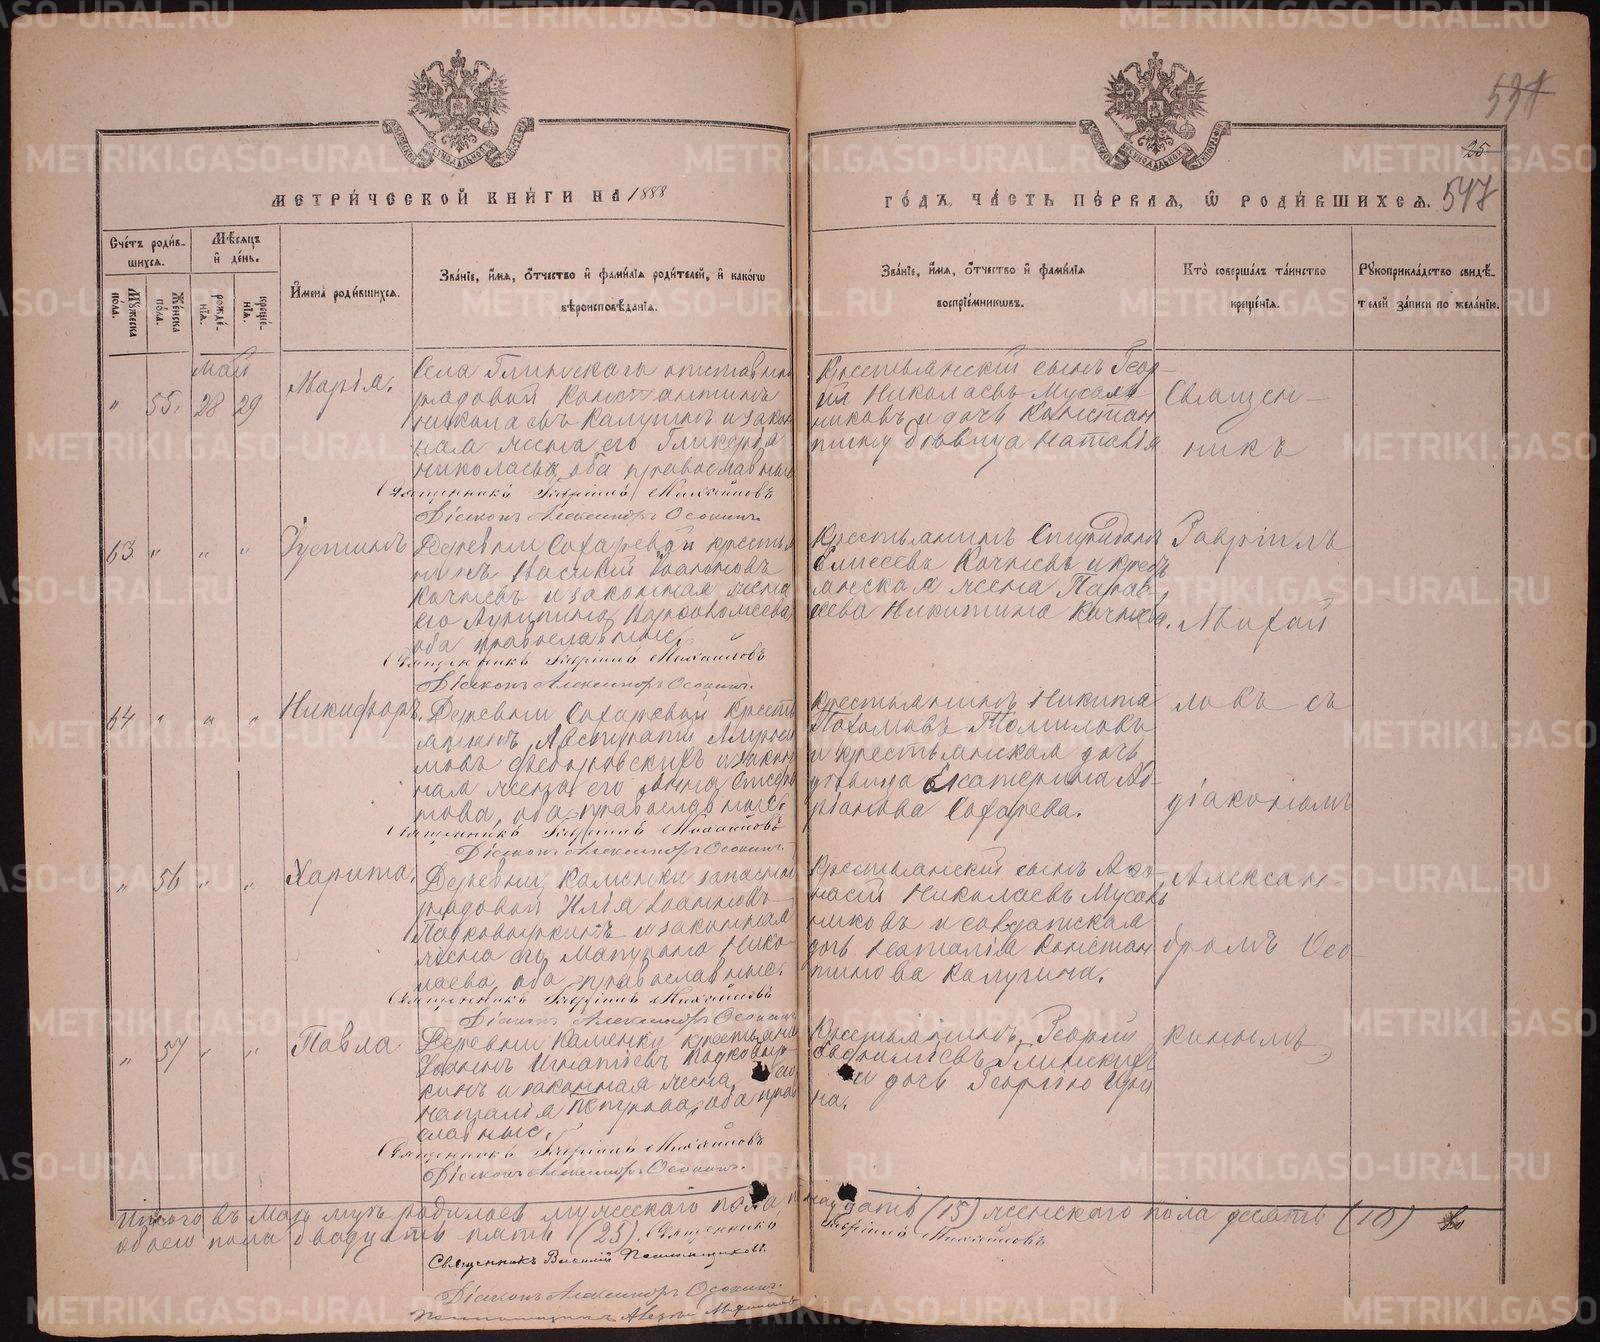 531
25
547
МЕТРИЧЕСКОЙ КНИГИ НА 1888
ГОДЪ, ЧАСТЬ ПЕРВАЯ, Ѡ РОДИВШИХСЯ.
Счетъ родив-
шихся.
Мѣсяцъ
и день.
Мужеска
пола.
Женска
пола.
рожде-
нія.
креще-
нія.
Имена родившихся.
Званіе, имя, отчество и фамилія родителей, и какого
вѣроисповѣданія.
Званіе, имя, отчество и фамилія
воспріемниковъ.
Кто совершалъ таинство
крещенія.
Рукоприкладство свидѣ-
телей записи по желанію.
май
" 55. 28 29 Марія.
Села Глинскаго отставной
рядовой Константинъ
Николаевъ Калугинъ и закон
ная жена его Гликерія
Николаева, оба православные
Священникъ Гавріилъ Михайловъ
Діаконъ Александръ Осокинъ.
Крестьянскій сынъ Геор-
гій Николаевъ Мусаль
никовъ и дочь Констан
тину дѣвица Наталія
Священ-
никъ
63 " " " Іустинъ
Деревни Сохаревой крестья
нинъ Василій Іоанновъ
Кочневъ и законная жена
его Акилина Варѳоломеева,
оба православные.
Священникъ Гавріилъ Михайловъ
Діаконъ Александръ Осокинъ.
Крестьянинъ Спиридонъ
Елисеевъ Кочневъ и кресть
янская жена Парас
кева Никитина Кочнева.
Гавріилъ
Михай
64 " " " Никифоръ.
Деревни Сохаревой кресть
янинъ
и закон
ная жена его Анна
оба православные.
Священникъ Гавріилъ Михайловъ
Діаконъ Александръ Осокинъ.
Крестьянинъ Никита
Пахомовъ Томиловъ
и крестьянская дочь
дѣвица Екатерина Ад
ріанова Сохарева.
ловъ съ
діакономъ
" 56 " " Харита.
Деревни Каменки запасной
рядовой Илія Іоанновъ
Подковыркинъ и законная
жена его Матрона Нико-
лаева, оба православные.
Священникъ Гавріилъ Михайловъ
Діаконъ Александръ Осокинъ
Крестьянскій сынъ Аѳа
насій Николаевъ Мусаль
никовъ и солдатская
дочь Наталія Констан
тинова Калугина.
Алексан
дромъ Осо-
" 57 " " Павла
Деревни Каменки крестьянинъ
Іоаннъ Игнатіевъ Подковыр-
кинъ и законная жена его
Наталія Петрова, оба право
славные.
Священникъ Гавріилъ Михайловъ
Діаконъ Александръ Осокинъ.
Крестьянинъ Георгій
Глинскихъ
и дочь Георгію Ири
на.
кинымъ
Итого въ маѣ мцѣ родилось мужескаго пола пятнадцать (15) женскаго пола десять (10)
обоего пола двадцать пять (25). Священникъ Гавріилъ Михайловъ
Священникъ Василій
Діаконъ Александръ Осокинъ.